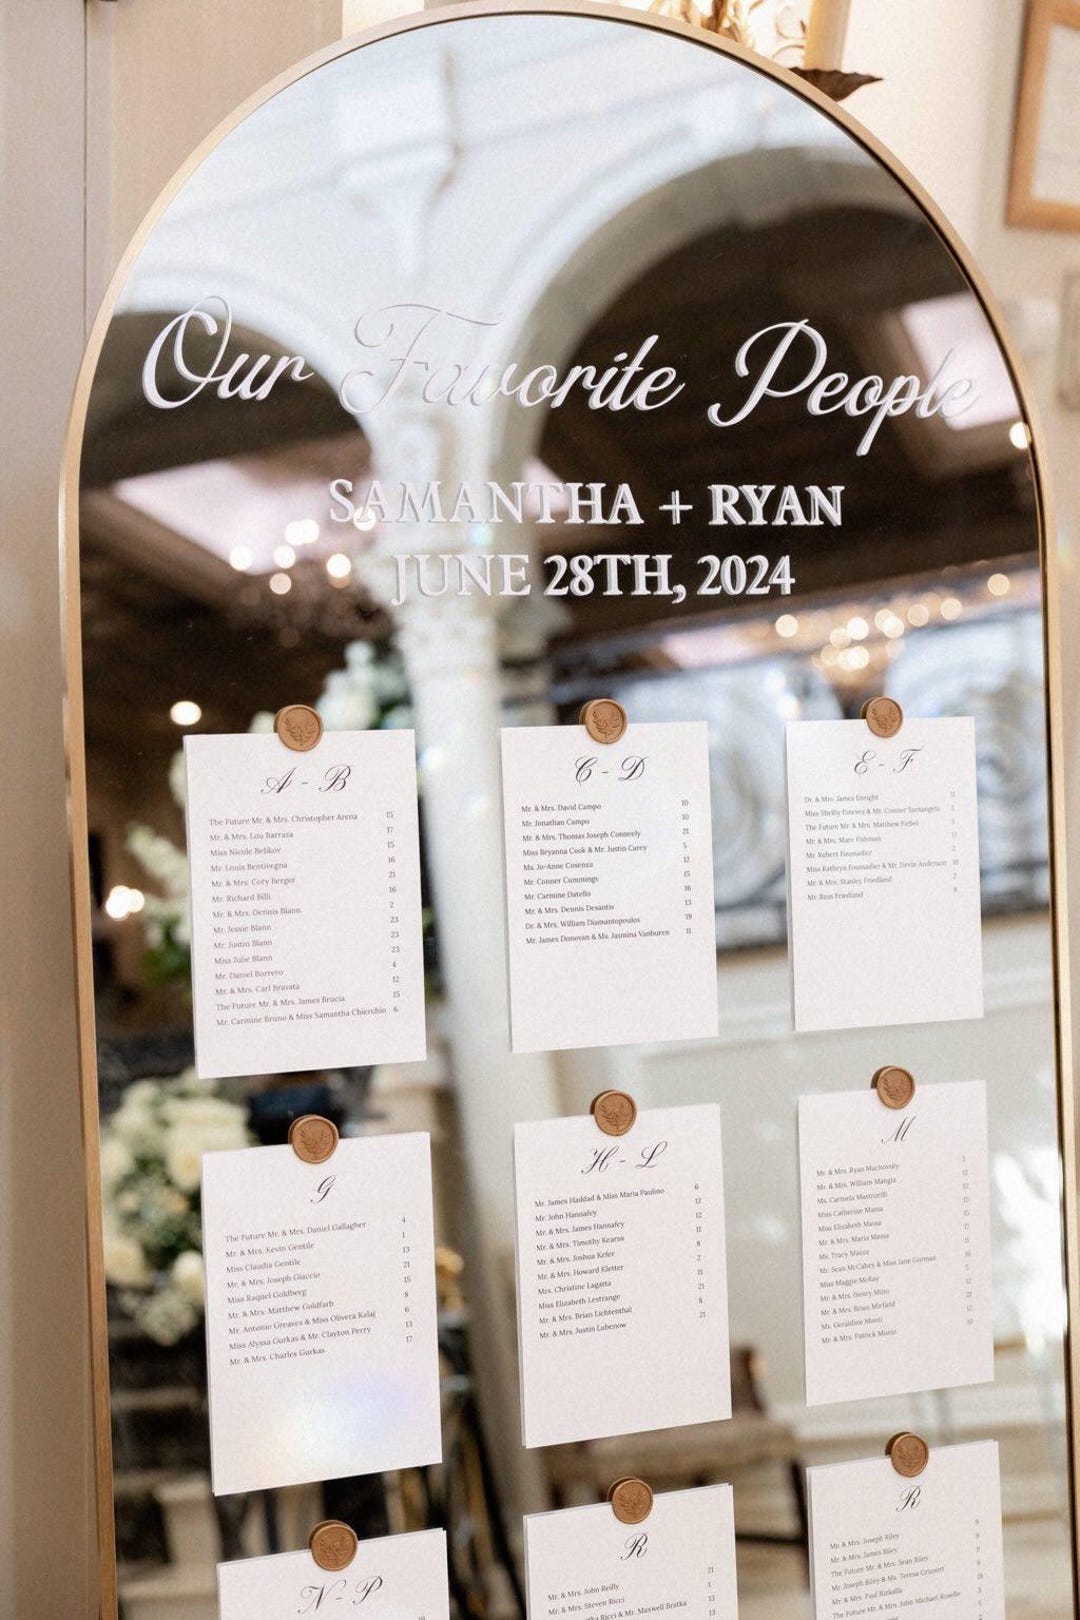 Our Favorite People
SAMANTHA + RYAN
JUNE 28TH, 2024
A - B
The Future Mr. & Mrs. Christopher Arena 15
Mr. & Mrs. Lou Barraza 17
Miss Nicole Belikov 15
Mr. Louis Bentivegna 16
Mr. & Mrs. Cory Berger 21
Mr. Richard Billi 16
Mr. & Mrs. Dennis Blann 2
Mr. Jessie Blann 23
Mr. Justin Blann 23
Miss Julie Blann 23
Mr. Daniel Borrero 4
Mr. & Mrs. Carl Bravata 12
The Future Mr. & Mrs. James Brucia 15
Mr. Carmine Bruno & Miss Samantha Chierchio 6
C - D
Mr. & Mrs. David Campo 10
Mr. Jonathan Campo 10
Mr. & Mrs. Thomas Joseph Conneely 21
Miss Bryanna Cook & Mr. Justin Carey 5
Ms. Jo-Anne Cosenza 12
Mr. Conner Cummings 15
Mr. Carmine Datello 16
Mr. & Mrs. Dennis Desantis 13
Dr. & Mrs. William Diamantopoulos 19
Mr. James Donovan & Ms. Jasmina Vanburen 11
E - F
Dr. & Mrs. James Enright 11
Miss Shelby Estevez & Mr. Connor Santangelo
The Future Mr. & Mrs. Matthew Fiebel
Mr. & Mrs. Marc Fishman
Mr. Robert Foussadier 2
Miss Kathryn Foussadier & Mr. Devin Anderson 10
Mr. & Mrs. Stanley Friedland 2
Mr. Ross Friedland 8
G
The Future Mr. & Mrs. Daniel Gallagher 4
Mr. & Mrs. Kevin Gentile 1
Miss Claudia Gentile 13
Mr. & Mrs. Joseph Giaccio 21
Miss Raquel Goldberg 15
Mr. & Mrs. Matthew Goldfarb 8
Mr. Antonio Greaves & Miss Olivera Kalaj 6
Miss Alyssa Gurkas & Mr. Clayton Perry 13
Mr. & Mrs. Charles Gurkas 17
H - L
Mr. James Haddad & Miss Maria Paulino 6
Mr. John Hannafey 12
Mr. & Mrs. James Hannafey 12
Mr. & Mrs. Timothy Kearns 11
Mr. & Mrs. Joshua Kefer 8
Mr. & Mrs. Howard Kletter 2
Mrs. Christine Lagatta 11
Miss Elizabeth Lestrange 21
Mr. & Mrs. Brian Lichtenthal 8
Mr. & Mrs. Justin Lubenow 21
M
Mr. & Mrs. Ryan Machovsky
Mr. & Mrs. William Mangia 12
Ms. Carmela Mastrocilli 12
Miss Catherine Massa
Miss Elizabeth Massa
Mr. & Mrs. Mario Massa
Ms. Tracy Mazza
Mr. Sean McCabey & Miss Jane Gorman
Miss Maggie McKay
Mr. & Mrs. Henry Mino
Mr. & Mrs. Brian Mirfield
Ms. Geraldine Monti
Mr. & Mrs. Patrick Munio 10
N - P
R
Mr. & Mrs. John Reilly 21
Mr. & Mrs. Steven Ricci 1
Ricci & Mr. Maxwell Bratka 13
R
Mr. & Mrs. Joseph Riley 9
Mr. & Mrs. James Riley 9
The Future Mr. & Mrs. Sean Riley
Mr. Joseph Riley & Ms. Teresa Grunert
Mr. & Mrs. Paul Rizkalla
The Future Mr. & Mrs. John Michael Roselle